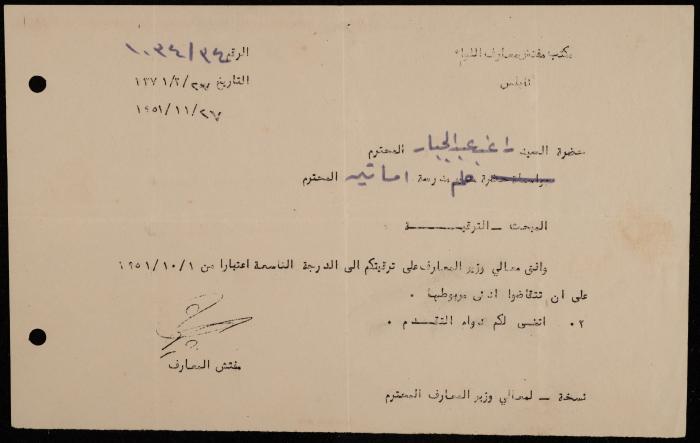 مكتب مفتش معارف اللواء
نابلس
الرقم ١٠٣٤/٣٤
التاريخ /٢/١٣٧١
١٩٥١/١١/٢٦
حضرة السيد راغب عبدالجبار المحترم
بواسطة حضرة معلم مدرسة اماتين المحترم
المبحث ــ الترقيــــــة
وافق معالي وزير المعارف على ترقيتكم الى الدرجة التاسعة اعتبارا من ١٩٥١/١٠/١
على ان تتقاضوا ادنى مربوطها ٠
٢٠ اتمنى لكم دوام التقــدم ٠
مفتش المعارف
نسخة ــ لمعالي وزير المعارف المحترم